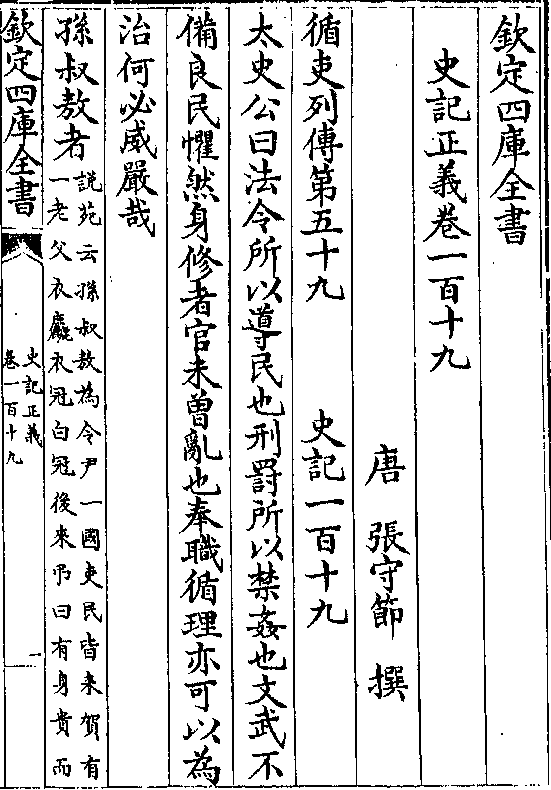 欽定四庫全書
史記正義卷一百十九
唐 張守節 撰
循吏列傳第五十九 史記一百十九
太史公曰法令所以導民也刑罰所以禁姦也文武不
備良民懼然身修者官未曾亂也奉職循理亦可以為
治何必威嚴哉
孫叔敖者說苑云孫叔敖為令尹一國吏民皆來賀有
一老父衣麤衣冠白冠後來弔曰有身貴而
欽定四庫全書
史記正義
卷一百十九
一